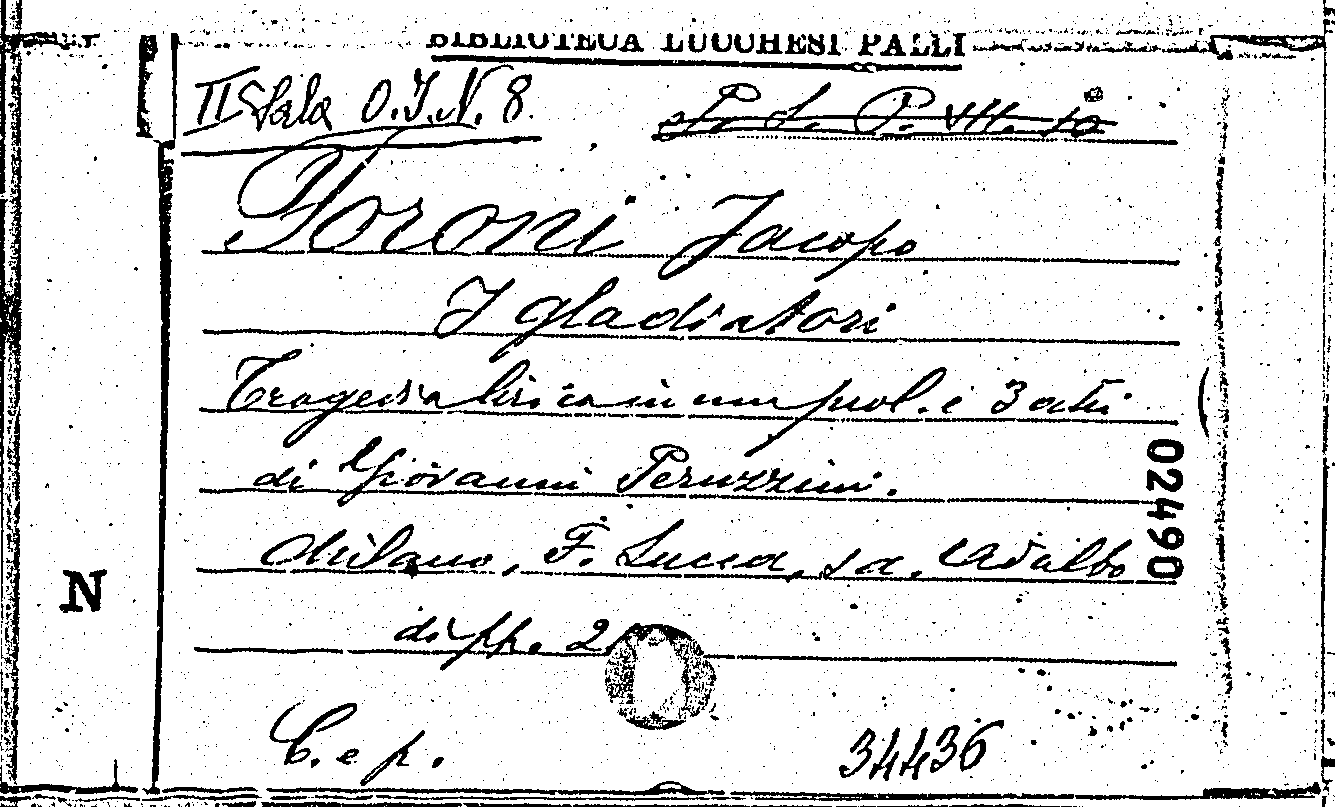 BIBLIOTECA LUCCHESI PALLI
II Sala O.I.N. 8.
Foroni Jacopo
I gladiatori
Tragedia lirica in un prol. e 3 atti
di Giovanni Peruzzini.
Milano, F. Lucca, s.a.
di pp.
C. e p.
34436
02490
N